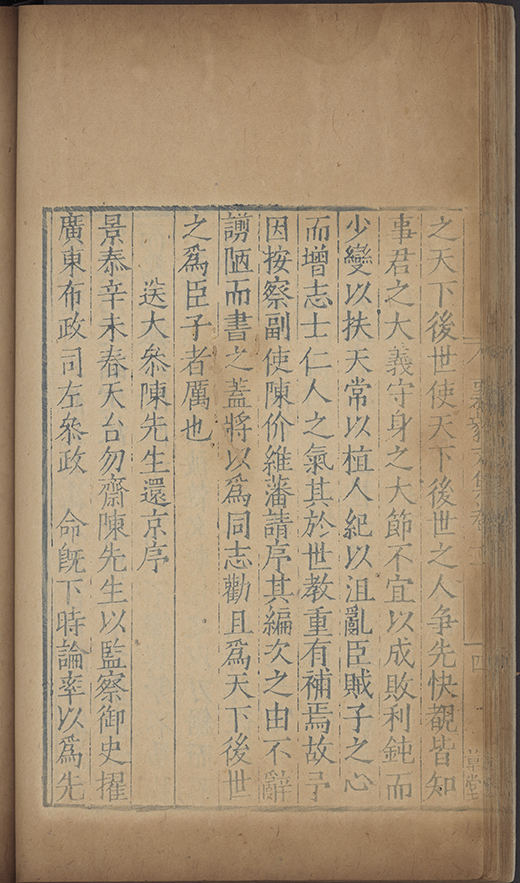 之天下後世使天下後世之人争先快覩皆知
事君之大義守身之大節不宜以成敗利鈍而
少變以扶天常以植人紀以沮亂臣賊子之心
而增志士仁人之氣其於世教重有補焉故予
因按察副使陳价維藩請序其編次之由不辭
譾陋而書之蓋將以爲同志勸且爲天下後世
之爲臣子者厲也
送大叅陳先生還京序
景泰辛未春天台勿齋陳先生以監察御史擢
廣東布政司左叅政 命既下時論率以爲先